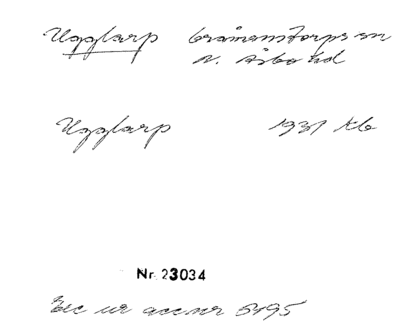 Ugglarp Gråmanstorps sn
N. Åsbo hd
Ugglarp 1931 kb
Nr 23034
Exc ur acc nr 5195